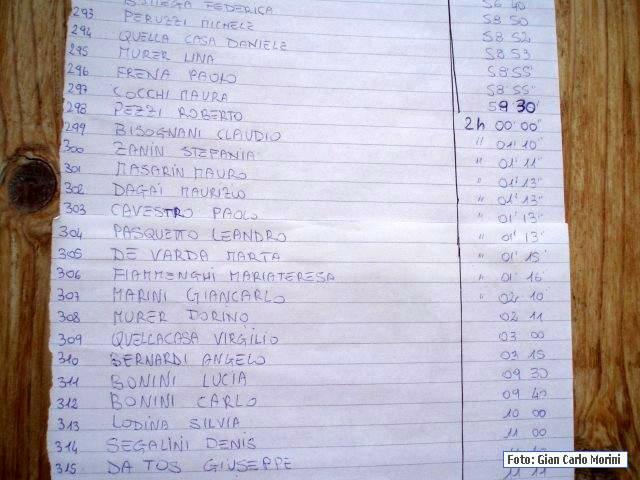 BOTTEGA FEDERICA 58 40
293 PERUZZI MICHELE 58 50
294 QUELLA CASA DANIELE 58 52
295 MURER LINA 58 53
296 FRENA PAOLO 58 55"
297 COCCHI MAURA 58'55"
298 PEZZI ROBERTO 59 30"
299 BISOGNANI CLAUDIO 2h 00'00"
300 ZANIN STEFANIA " 01'10"
301 MASARIN MAURO " 01'11"
302 DAGAI MAURIZIO " 01'13"
303 CAVESTRO PAOLO " 01'13"
" 01'13"
304 PASQUETTO LEANDRO " 01'13"
305 DE VARDA MARTA " 01'15
306 FIAMMENGHI MARIATERESA " 01'16
307 MARINI GIANCARLO " 02'10
308 MURER DORINO 02 11
309 QUELLACASA VIRGILIO 03 00
310 BERNARDI ANGELO 03 15
311 BONINI LUCIA 09 30
312 BONINI CARLO 09 40
313 LODINA SILVIA 10 00
314 SEGALINI DENIS 11 00
315 DA TOS GIUSEPPE 11 11
Foto: Gian Carlo Morini